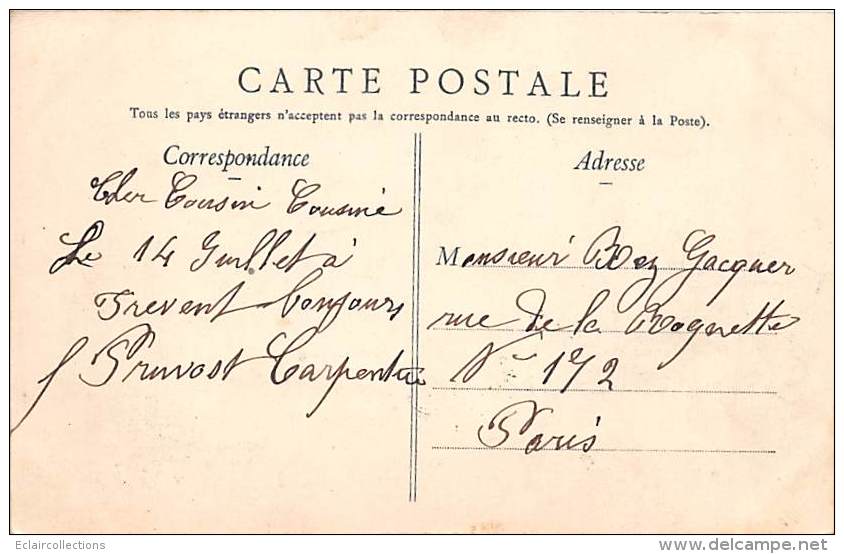 CARTE POSTALE
Tous les pays étrangers n'acceptent pas la correspondance au recto. (Se renseigner à la Poste).
Correspondance
Cher Cousin Cousine
Le 14 Juillet à
Frevent Bonjours
Pruvost Carpentier
Adresse
Monsieur Boez Jacquer
rue de la Roquette
N° 172
Paris
Eclaircollections
www.delcampe.net